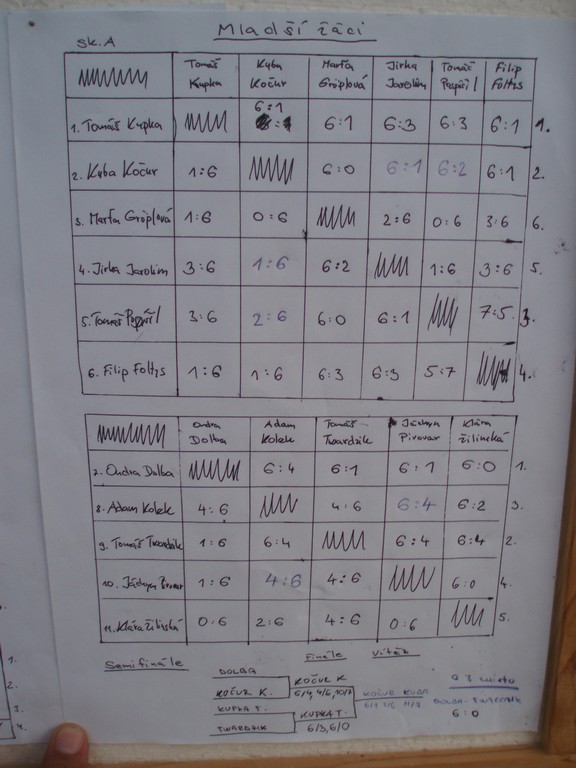 Mladší žáci
sk. A
Tomáš Kupka Kuba Kočur Marťa Gröplová Jirka Jarolím Tomáš Pospíšil Filip Foltys
1. Tomáš Kupka 6:1 6:1 6:3 6:3 6:1 1.
2. Kuba Kočur 1:6 6:0 6:1 6:2 6:1 2.
3. Marťa Gröplová 1:6 0:6 2:6 0:6 3:6 6.
4. Jirka Jarolím 3:6 1:6 6:2 1:6 3:6 5.
5. Tomáš 3:6 2:6 6:0 6:1 7:5 3.
6. Filip Foltys 1:6 1:6 6:3 6:3 5:7 4.
Ondra Dolba Adam Kolek Tomáš Twardzik Jáchym Pivovar Klára Žilinská
7. Ondra Dolba 6:4 6:1 6:1 6:0 1.
8. Adam Kolek 4:6 4:6 6:4 6:2 3.
9. Tomáš Twardzik 1:6 6:4 6:4 6:4 2.
10. Jáchym Pivovar 1:6 4:6 4:6 6:0 4.
11. Klára Žilinská 0:6 2:6 4:6 0:6 5.
Semifinále Finále Vítěz
DOLBA
KOČUR K. KOČUR K.
6/4, 4/6, 10/7 KOČUR KUBA
O 3 místo
KUPKA T. KUPKA T. DOLBA - TWARDZIK
TWARDZIK 6/3, 6/0 6:0
1.
2.
3.
4.